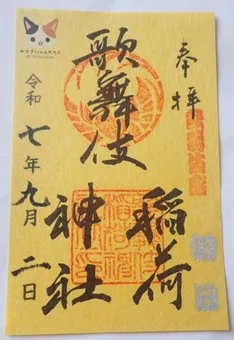 奉拝
歌舞伎
稲荷
神社
令和七年九月二日